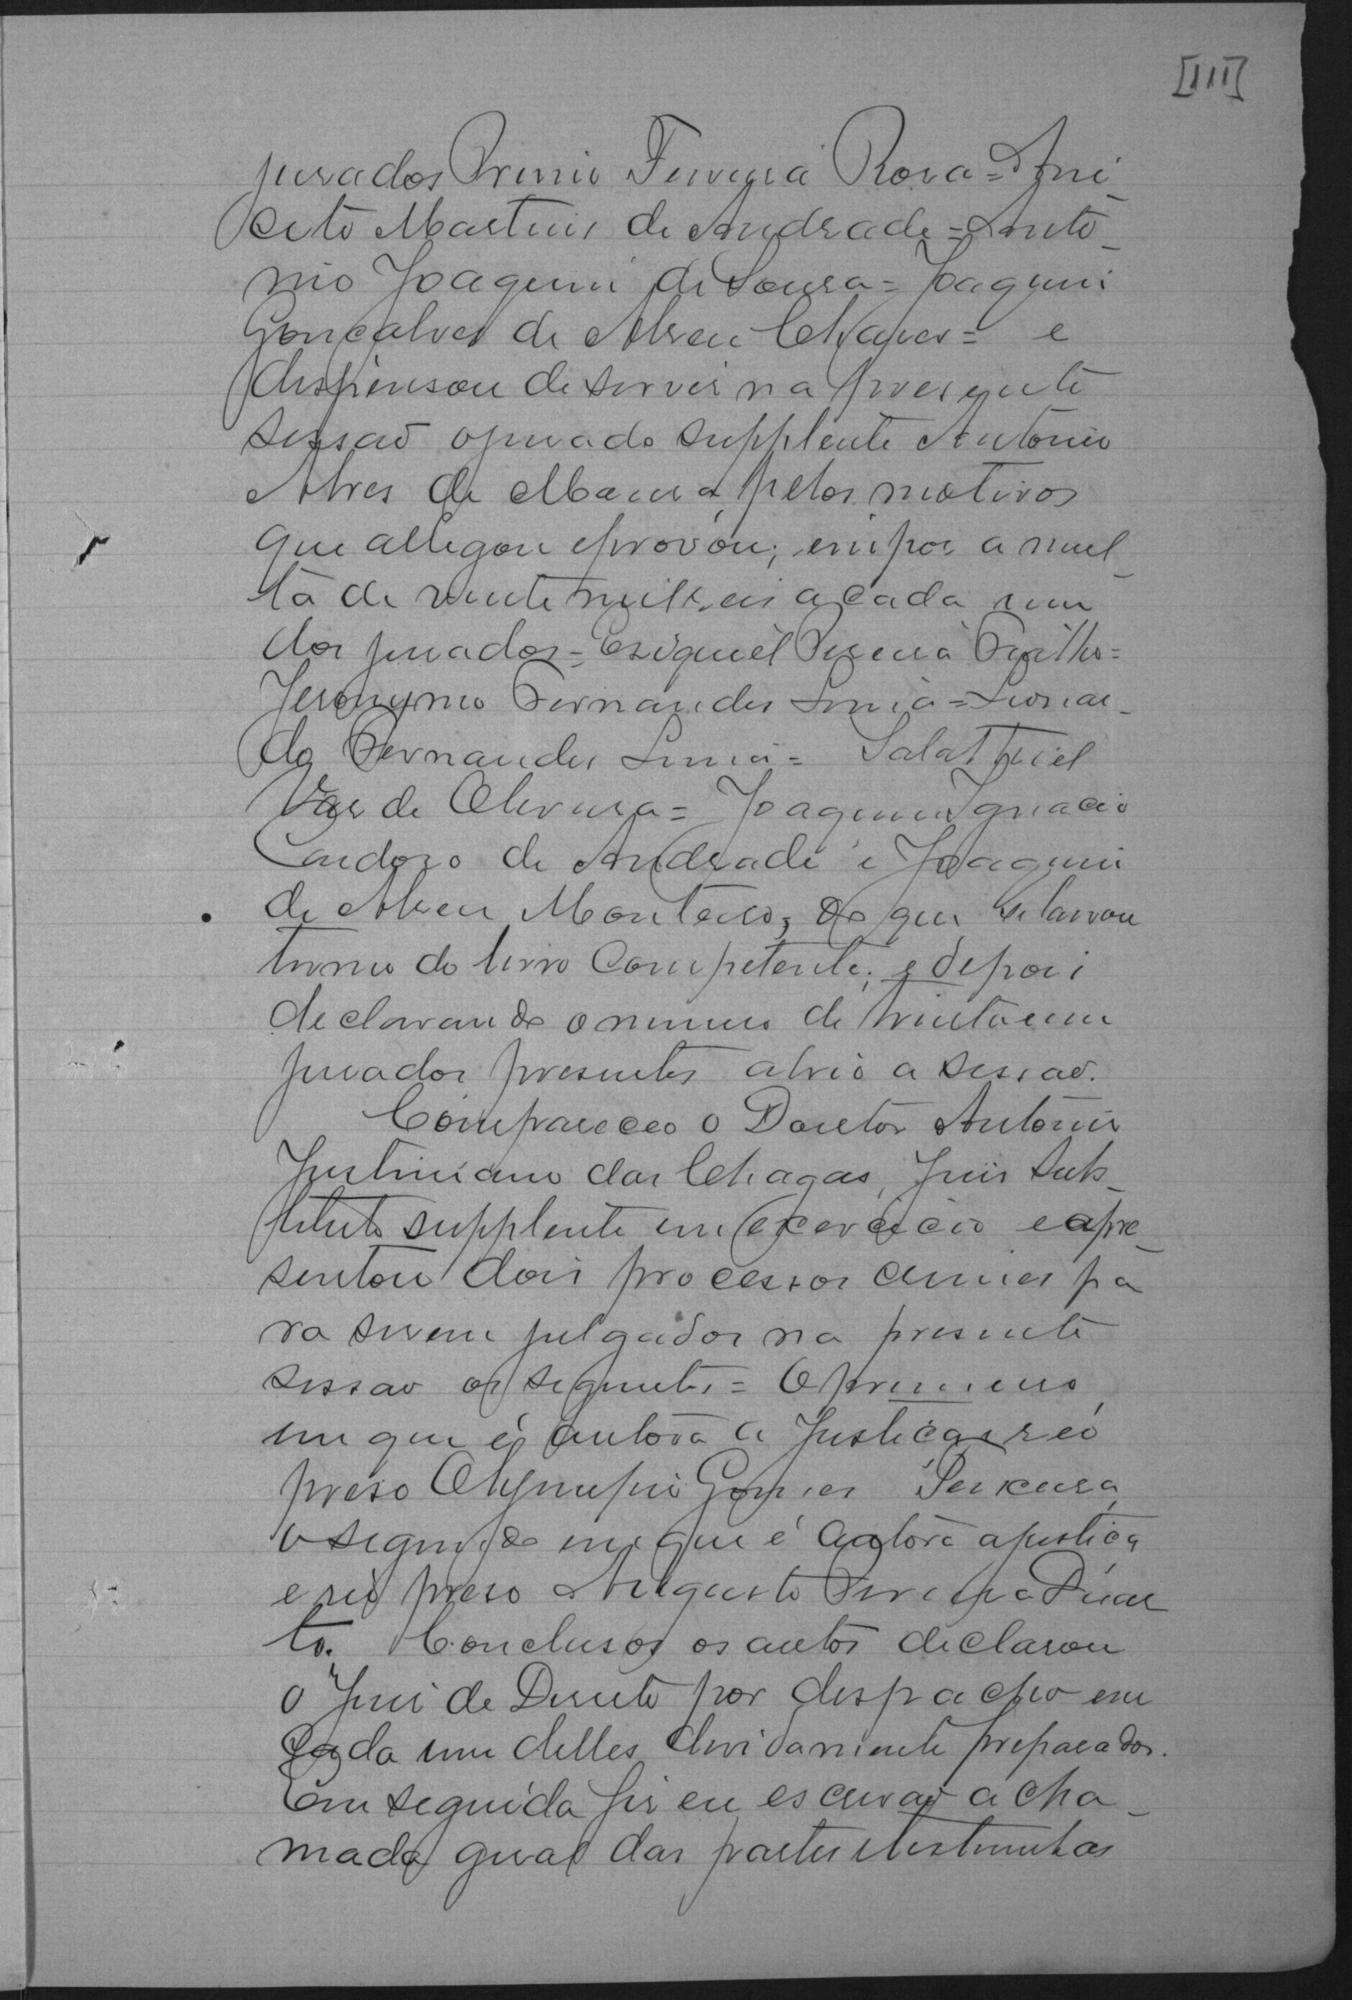 [111]
jurados Primio Ferreira Rosa = Ani-
ceto Martins de Andrade = Anto-
nio Joaquim de Sousa = Joaquim
Gonçalves de Abreu Chaves = e
dispensou de servir na presente
sessaõ o jurado supplente Antonio
Alves de Moura, pelos motivos
que allegou e provou; impos a mul-
ta de vinte mil reis a cada um
dos jurados = Esiquiel Pereira Filho =
Jeronymo Fernandes Lima = Leonar-
do Fernandes Lima = Salathiel
Vas de Oliveira = Joaquim Ignacio
Cardozo de Andrade e Joaquim
de Abreu Monteiro, do que se lavrou
termo do livro Competente; e depois
declarando o numero de trinta e um
jurados presentes abrio a sessaõ.
Compareceo o Doutor Antonio
Justiniano das Chagas, Juis Subs-
tituto supplente em exercicio e apre-
sentou dois processos crimes pa
ra serem julgados na presente
sessaõ os seguintes = O primeiro,
em que é autora a Justiça e reo
preso Olympio Gomes Teixeira,
o segundo em que é autora a justiça
e reo preso Augusto Pereira Duar
te. Conclusos os autos declarou
o Juis de Direito por despacho em
cada um delles devidamente preparados.
Em seguida fis eu escrivaõ a cha-
mada geral das partes e testimunhas